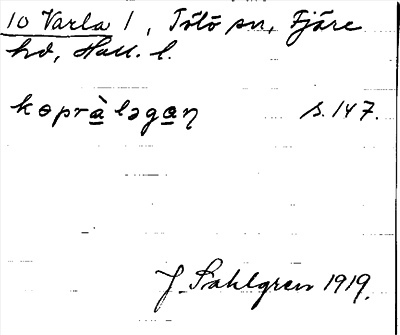 10 Varla 1, Tölö sn, Fjäre
hd, Hall. l.
kopràləgaŋ s. 147.
J. Sahlgren 1919.